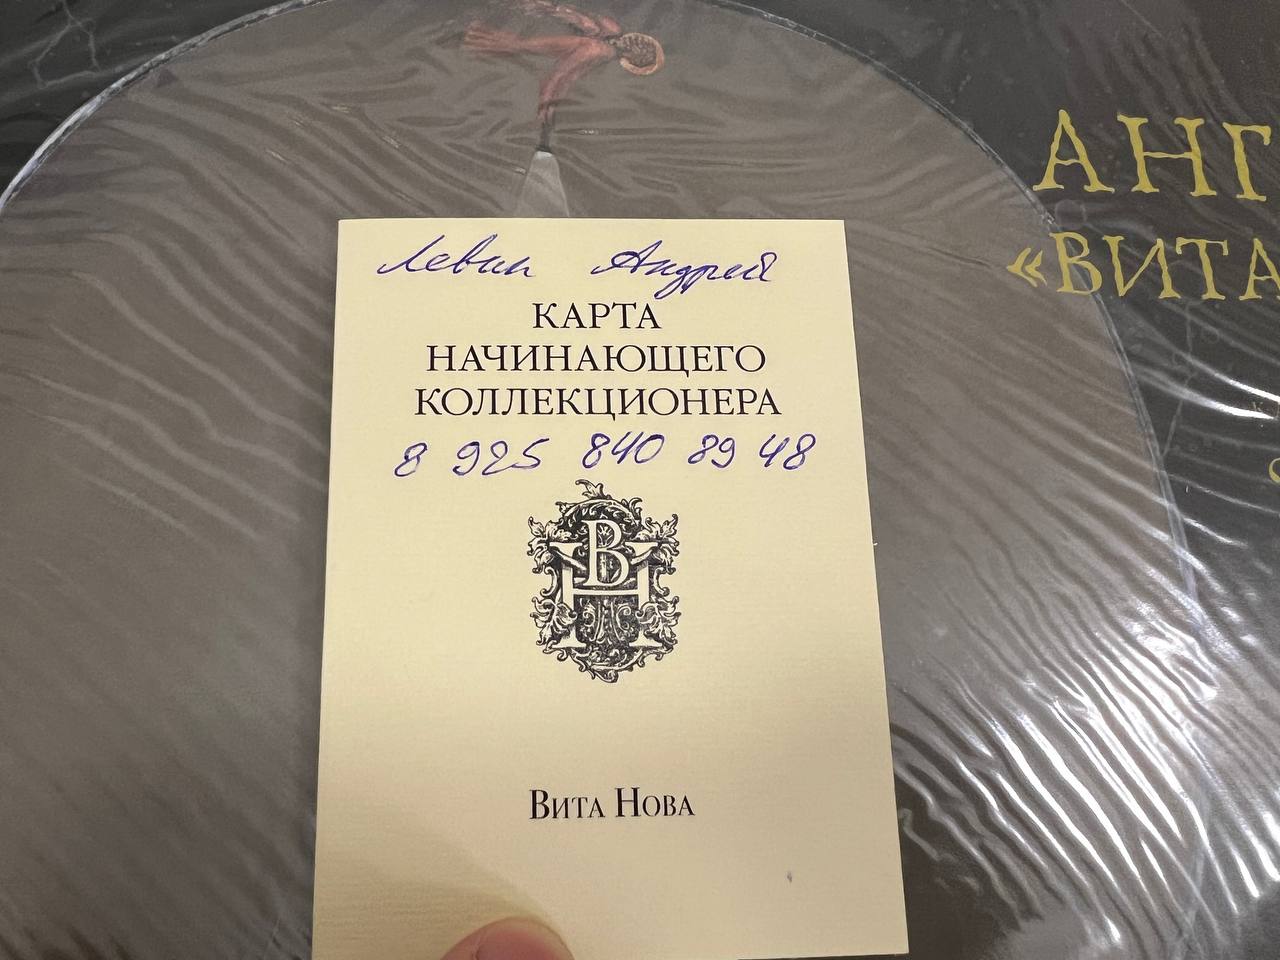 Левин Андрей
КАРТА
НАЧИНАЮЩЕГО
КОЛЛЕКЦИОНЕРА
8 925 840 89 48
ВН
Вита Нова
АНГ
«ВИТА